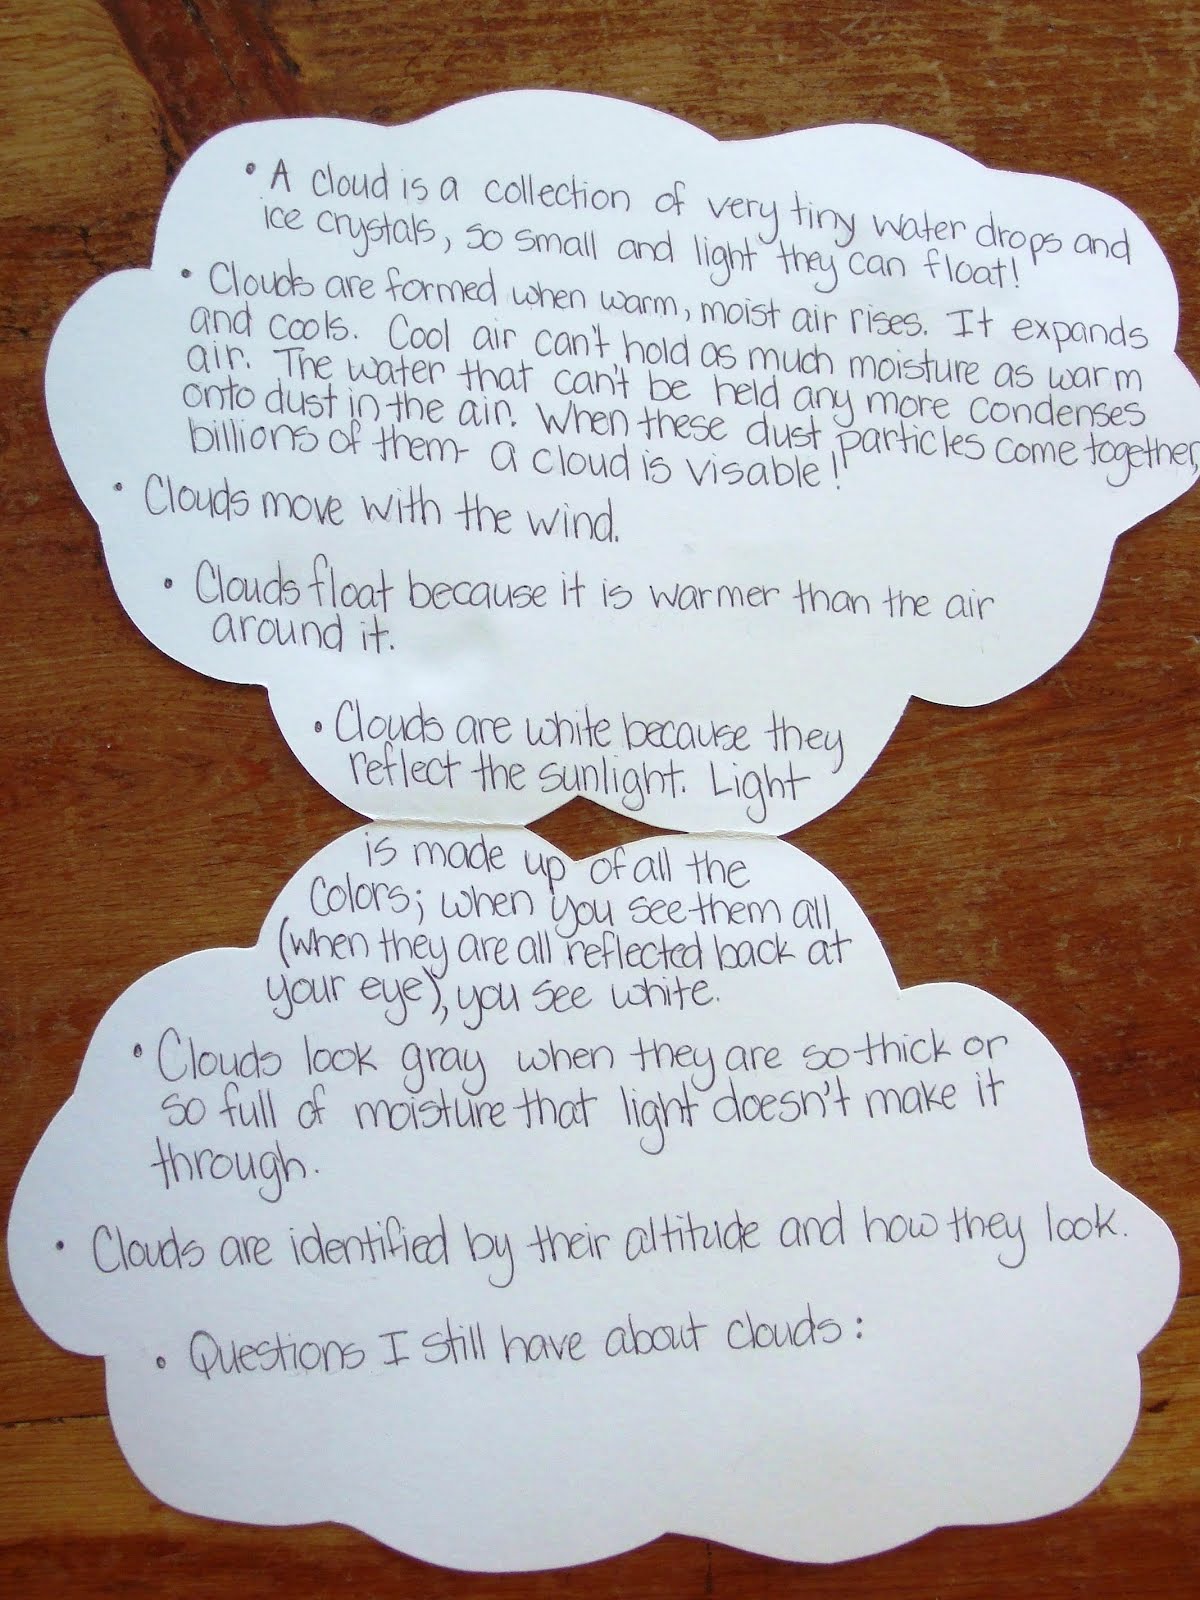 • A cloud is a collection of very tiny water drops and
ice crystals, so small and light they can float!
• Clouds are formed when warm, moist air rises. It expands
and cools. Cool air can't hold as much moisture as warm
air. The water that can't be held any more condenses
onto dust in the air. When these dust particles come together,
billions of them- a cloud is visable!
• Clouds move with the wind.
• Clouds float because it is warmer than the air
around it.
• Clouds are white because they
reflect the sunlight. Light
is made up of all the
colors; when you see them all
(when they are all reflected back at
your eye), you see white.
• Clouds look gray when they are so thick or
so full of moisture that light doesn't make it
through.
• Clouds are identified by their altitude and how they look.
• Questions I still have about clouds: